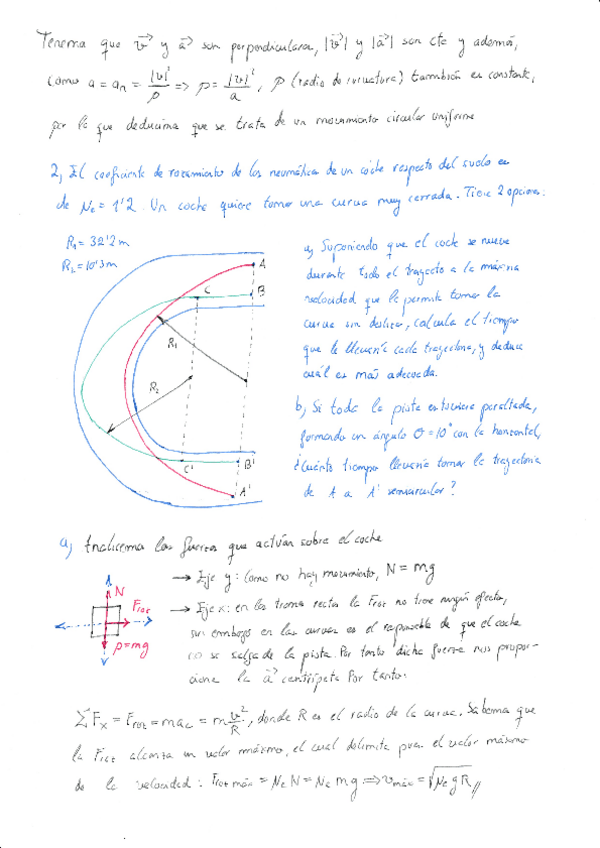 Tenemos que v⃗ y a⃗ son perpendiculares, |v⃗| y |a⃗| son cte y además,
como a = aₙ = |v⃗|²/ρ ⇒ ρ = |v⃗|²/a, ρ (radio de curvatura) también es constante,
por lo que deducimos que se trata de un movimiento circular uniforme
2, El coeficiente de rozamiento de los neumáticos de un coche respecto del suelo es
de μe = 1'2. Un coche quiere tomar una curva muy cerrada. Tiene 2 opciones:
R₁ = 32'2 m
R₂ = 10'3 m
A
B
C
R₁
R₂
C'
B'
A'
a, Suponiendo que el coche se mueve
durante todo el trayecto a la máxima
velocidad que le permite tomar la
curva sin deslizar, calcula el tiempo
que le llevaría cada trayectoria, y deduce
cuál es más adecuada.
b, Si toda la pista estuviera peraltada,
formando un ángulo Θ = 10° con la horizontal,
¿Cuánto tiempo llevaría tomar la trayectoria
de A a A' semicircular?
a, Analicemos las fuerzas que actúan sobre el coche
N
Froz
p=mg
→ Eje y: como no hay movimiento, N = mg
→ Eje x: en los tramos rectos la Froz no tiene ningún efecto,
sin embargo en las curvas es el responsable de que el coche
no se salga de la pista. Por tanto dicha fuerza nos propor-
cione la a⃗ centrípeta. Por tanto:
ΣFx = Froz = mac = m v²/R, donde R es el radio de la curva. Sabemos que
la Froz alcanza un valor máximo, el cual delimita pues el valor máximo
de la velocidad: Froz máx = μe N = μe mg ⇒ vmáx = √(μe g R) //